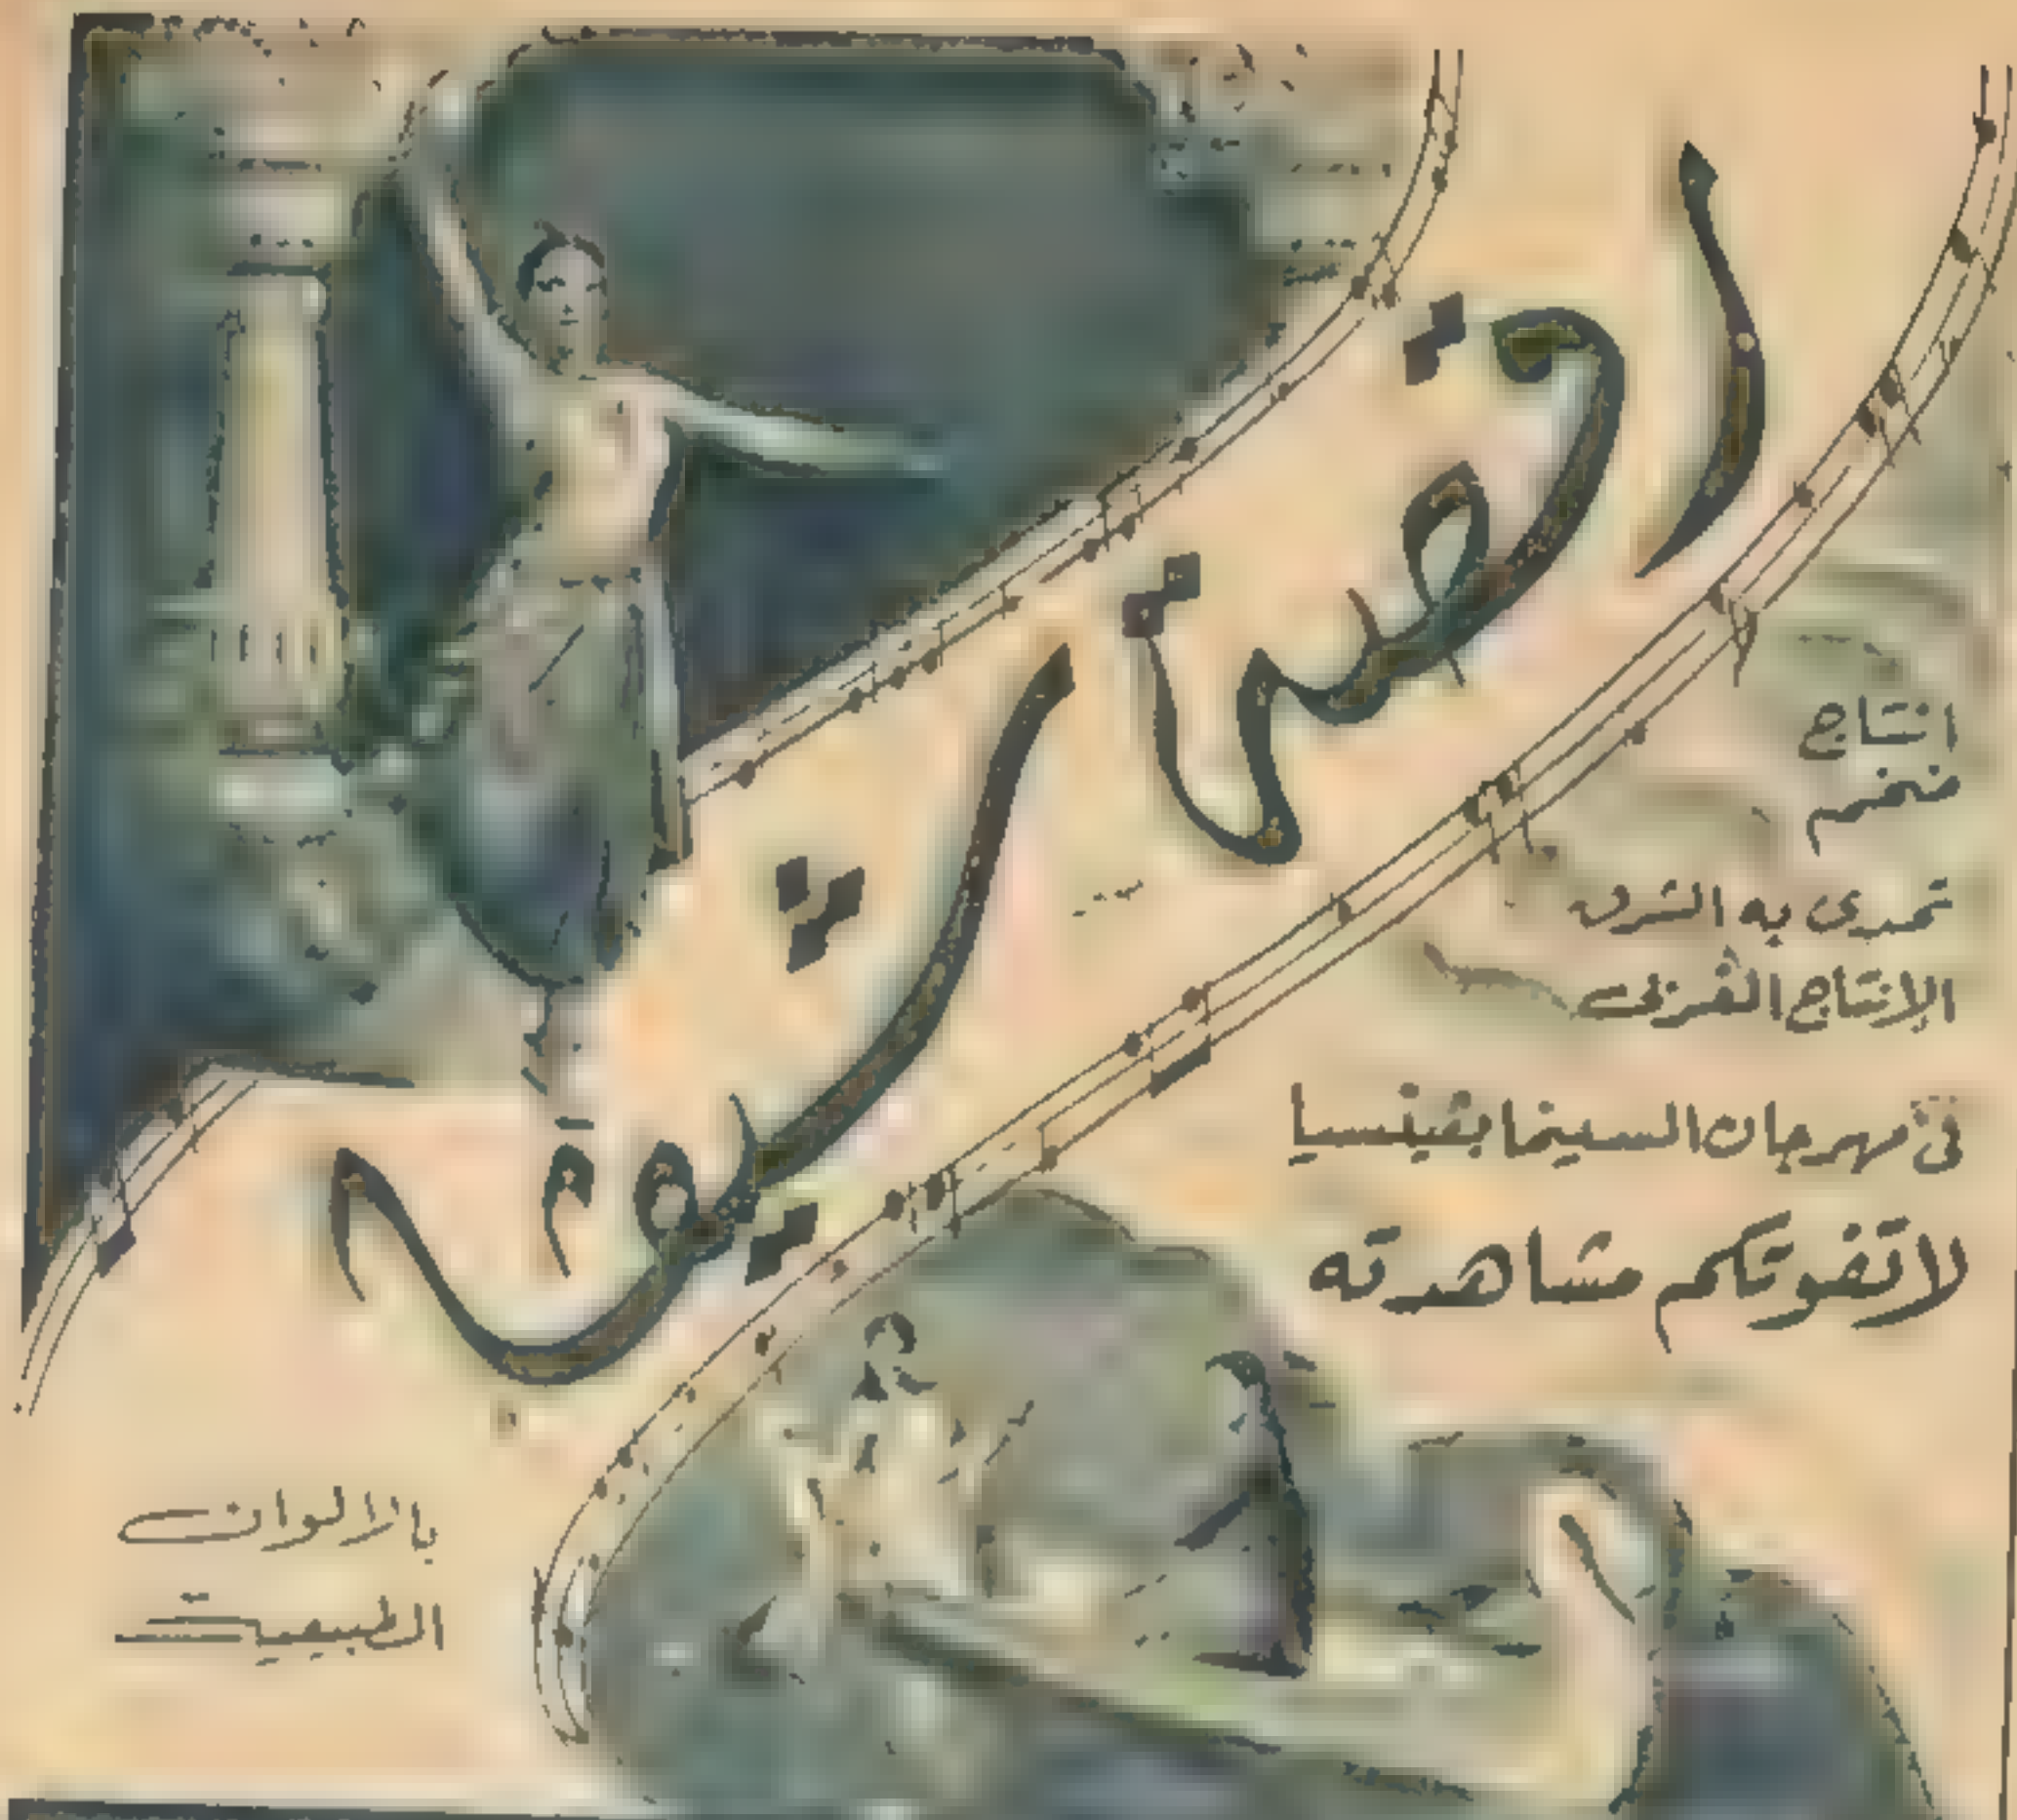 راقصتا
شيفا
انتاج
ضخم
تحدى به الشرق
الإنتاج الغربى
فى مهرجان السينما بڤينسيا
لا تفوتكم مشاهدته
بالالوان
الطبيعية